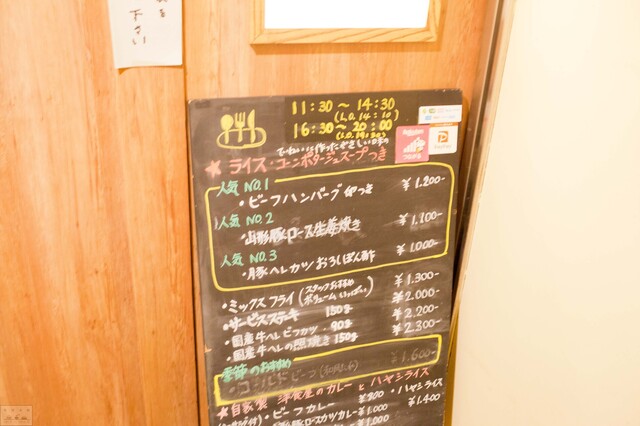 を
下さい
11:30～14:30
(L.O. 14:10)
16:30～20:00
ていねいに作ったやさしい日本の
★ライス・コーンポタージュスープつき
人気 NO.1
・ビーフハンバーグ 卵つき ¥1,200-
人気 NO.2
・山形豚ロース生姜焼き ¥1,100-
人気 NO.3
・豚ヘレカツおろしぽん酢 ¥1,000-
・ミックスフライ(スタッフおすすめ ボリュームいっぱい) ¥1,300-
・サービスステキ 150g ¥2,000-
・国産牛ヘレビフカツ・90g ¥2,200-
・国産牛ヘレの照焼き 150g ¥2,300-
季節のおすすめ
・コールドビーフ ¥1,600-
★自家製 洋食屋のカレーとハヤシライス
・ビーフカレー ¥900 ・ハヤシライス
豚ロースカツカレー ¥1,000 ¥1,400
¥1,000